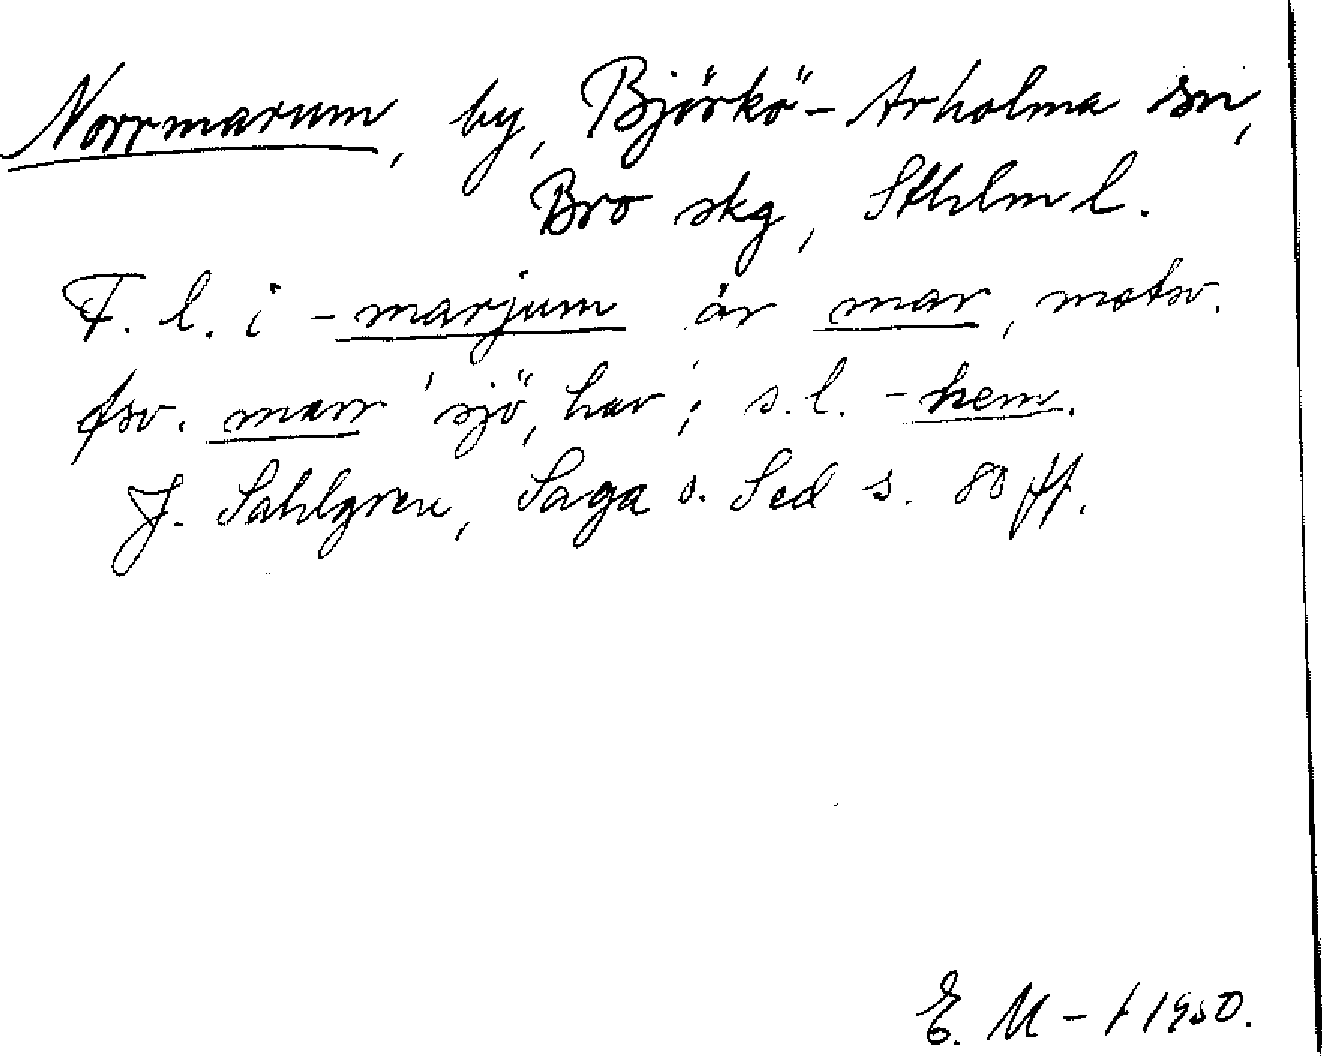 Norrmarum, by, Björkö-Arholma sn,
Bro skg, Sthlm l.
F. l. i -marjum är mar, motsv.
fsv. marr 'sjö, hav'; s.l. -hem.
J. Sahlgren, Saga o. Sed s. 80 ff.
E. M-t 1950.